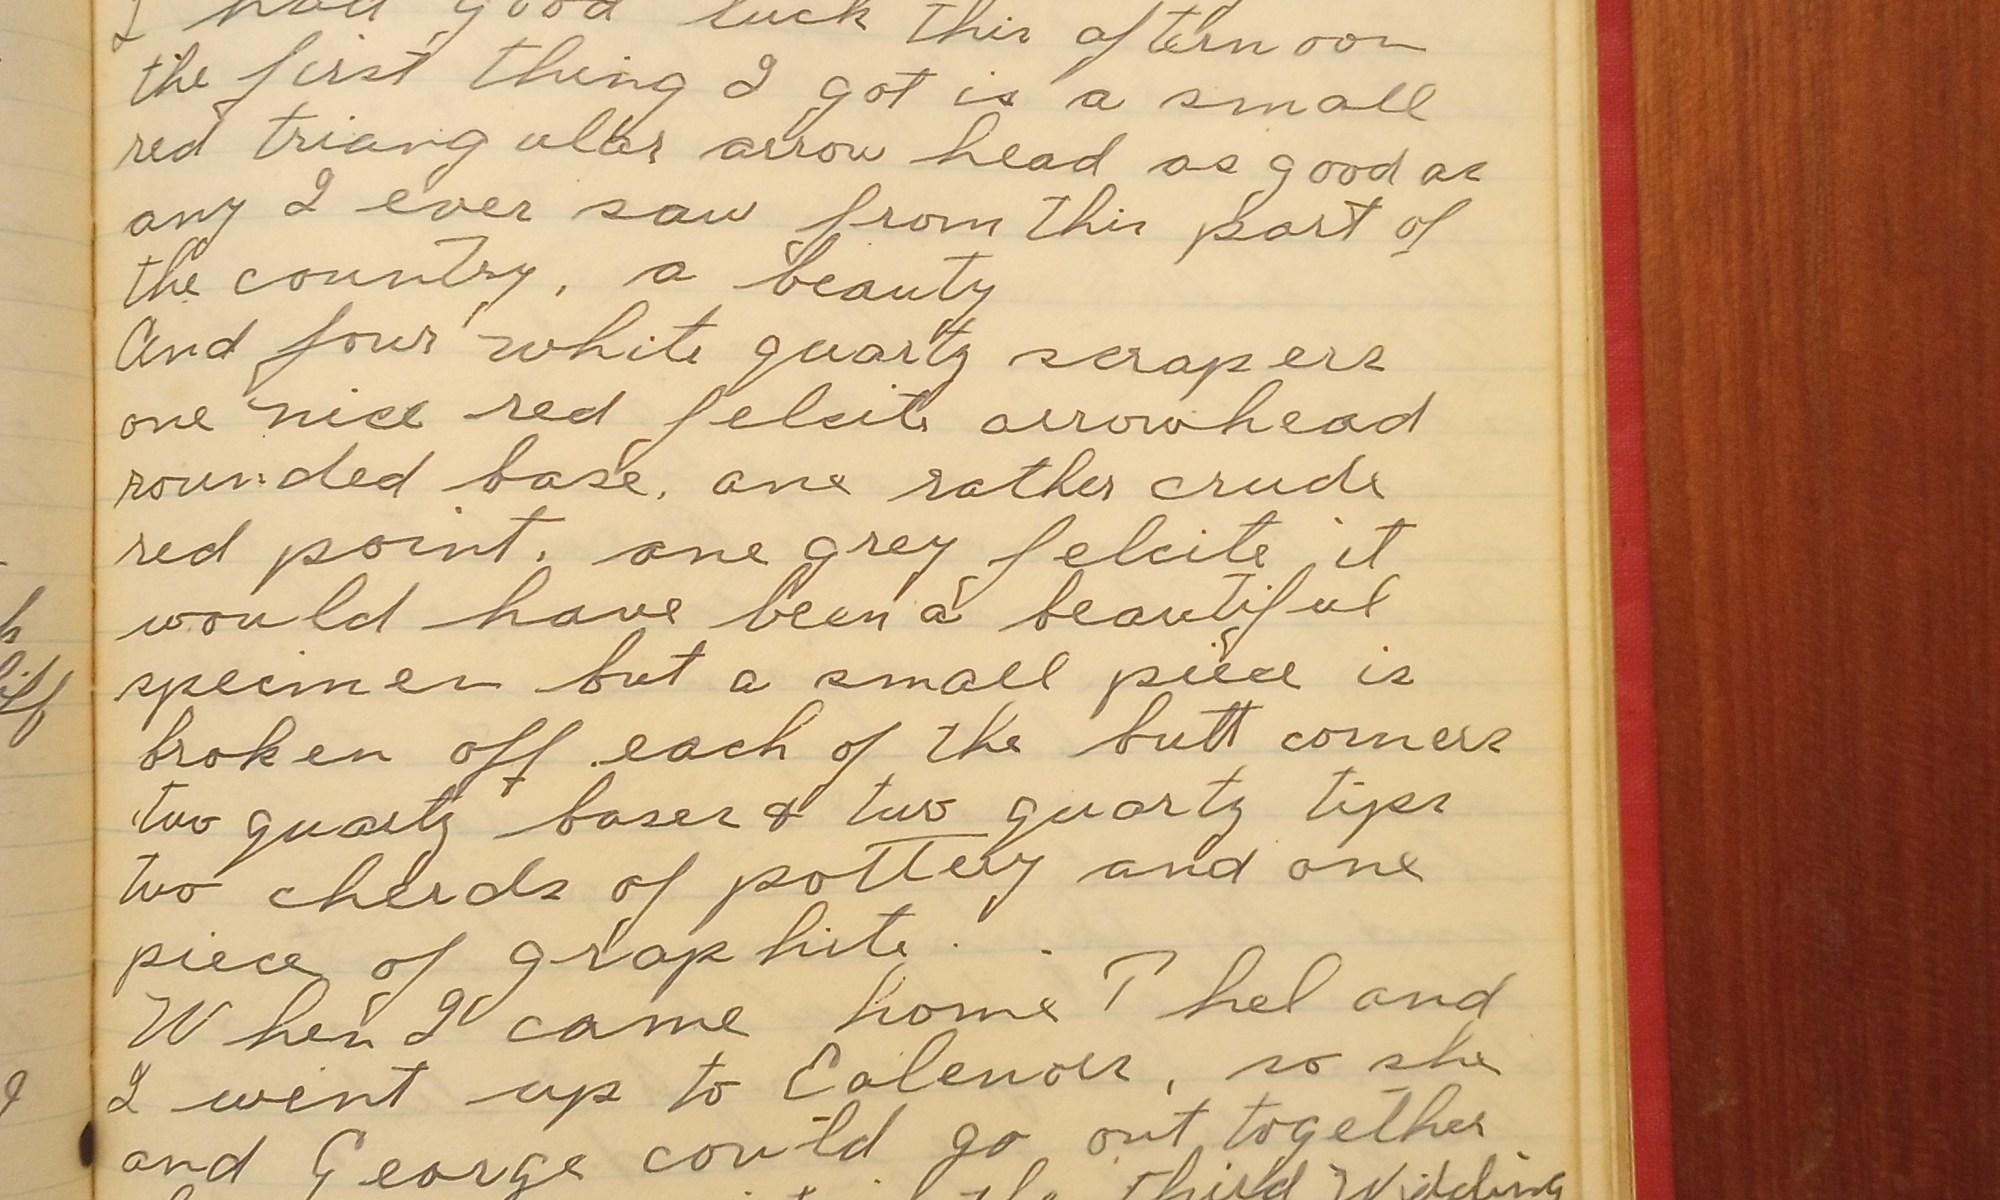 I had good luck this afternoon
the first thing I got is a small
red triangular arrow head as good as
any I ever saw from this part of
the country, a beauty
And four white quartz scrapers
one nice red felcite arrowhead
rounded base, one rather crude
red point, one grey felcite it
would have been a beautiful
specimen but a small piece is
broken off each of the butt corners
two quartz bases & two quartz tips
two cherds of pottery and one
piece of graphite.
When I came home Thel and
I went up to Ealenors, so she
and George could go out together
the third Wedding